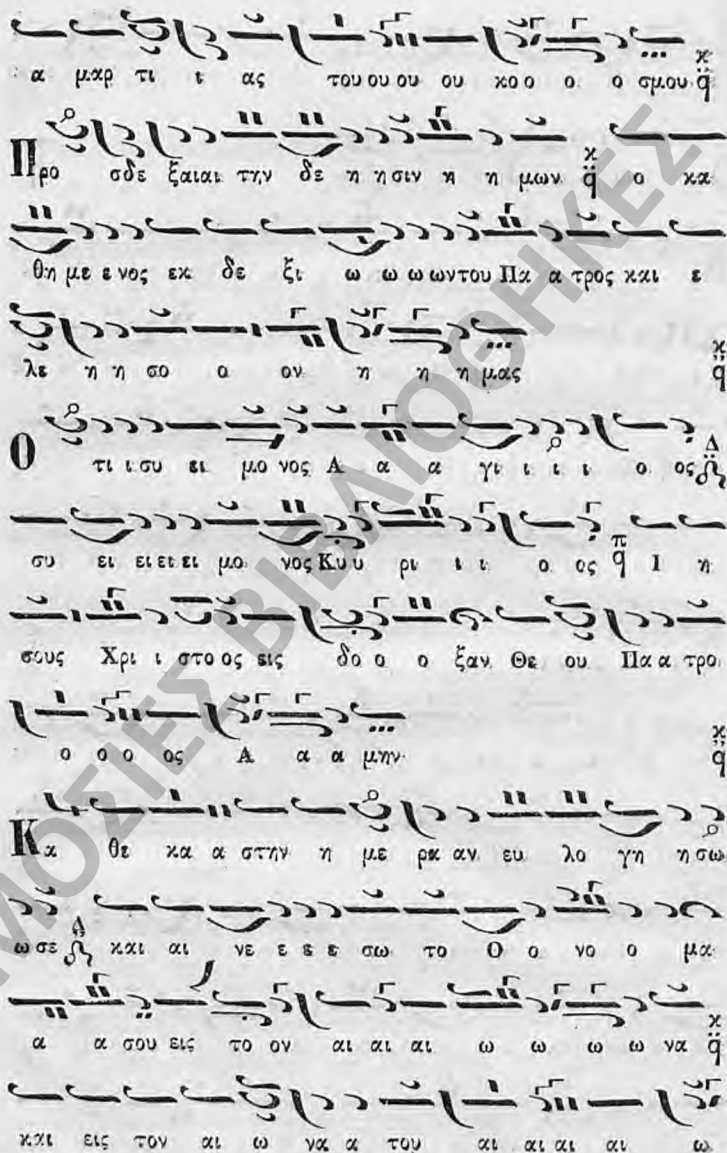 α μαρ τι ι ας του ου ου ου κο ο ο ο σμου
Προ σδε ξαιαι την δε η η σιν η η μων ο κα
θη με ε νος εκ δε ξι ω ω ω ων του Πα α τρος και ε
λε η η σο ο ον η η η μας
Ο τι ι συ ει μο νος Α α α γι ι ι ι ο ος
συ ει ει ει ει μο νος Κυ υ ρι ι ι ο ος Ι η
σους Χρι ι στο ος εις δο ο ο ξαν Θε ου Πα α τρο
ο ο ο ος Α α α μην
Κα θε κα α στην η με ρα αν ευ λο γη η σω
ω σε και αι νε ε ε ε σω το Ο ο νο ο μα
α α σου εις το ον αι αι αι ω ω ω ω να
και εις τον αι ω να α του αι αι αι αι ω
ΜΟΣΙΕΣ ΒΙΒΛΙΟΘΗΚΕΣ